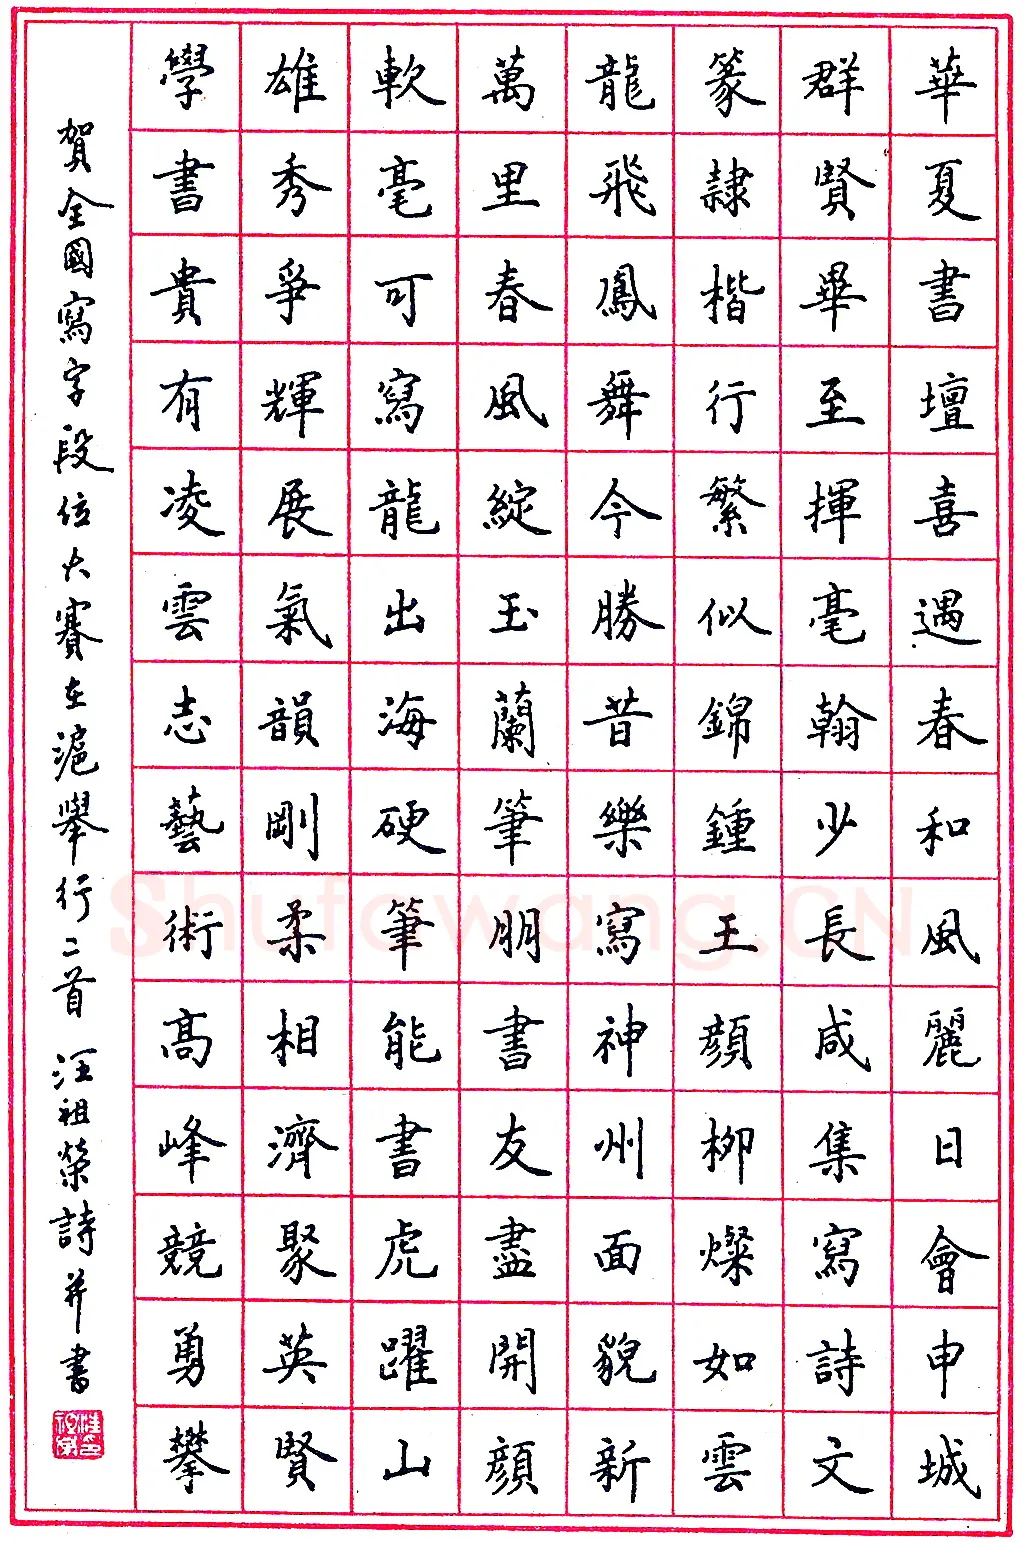 華夏書壇喜遇春和風麗日會申城
群賢畢至揮毫翰少長咸集寫詩文
篆隷楷行繁似錦鍾王顏柳燦如雲
龍飛鳳舞今勝昔樂寫神州面貌新
萬里春風綻玉蘭筆朋書友盡開顏
軟毫可寫龍出海硬筆能書虎躍山
雄秀爭輝展氣韻剛柔相濟聚英賢
學書貴有凌雲志藝術高峰競勇攀
賀全國寫字段位大賽在滬舉行二首 汪祖榮詩并書
Shufawang.CN